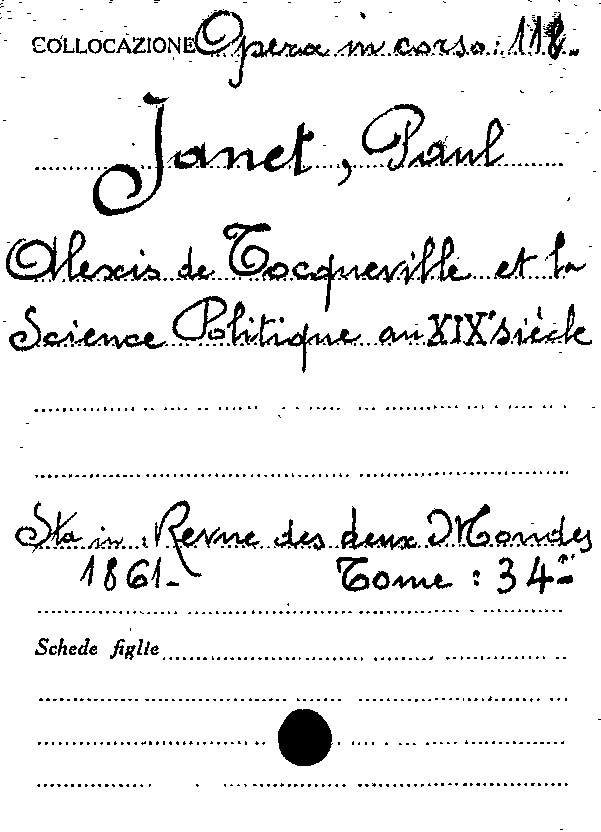 COLLOCAZIONE Opera in corso: 118.
Janet, Paul
Alexis de Tocqueville et la
Science Politique au XIXe siècle
Sta in: Revue des deux Mondes
1861- Tome: 34me
Schede figlie